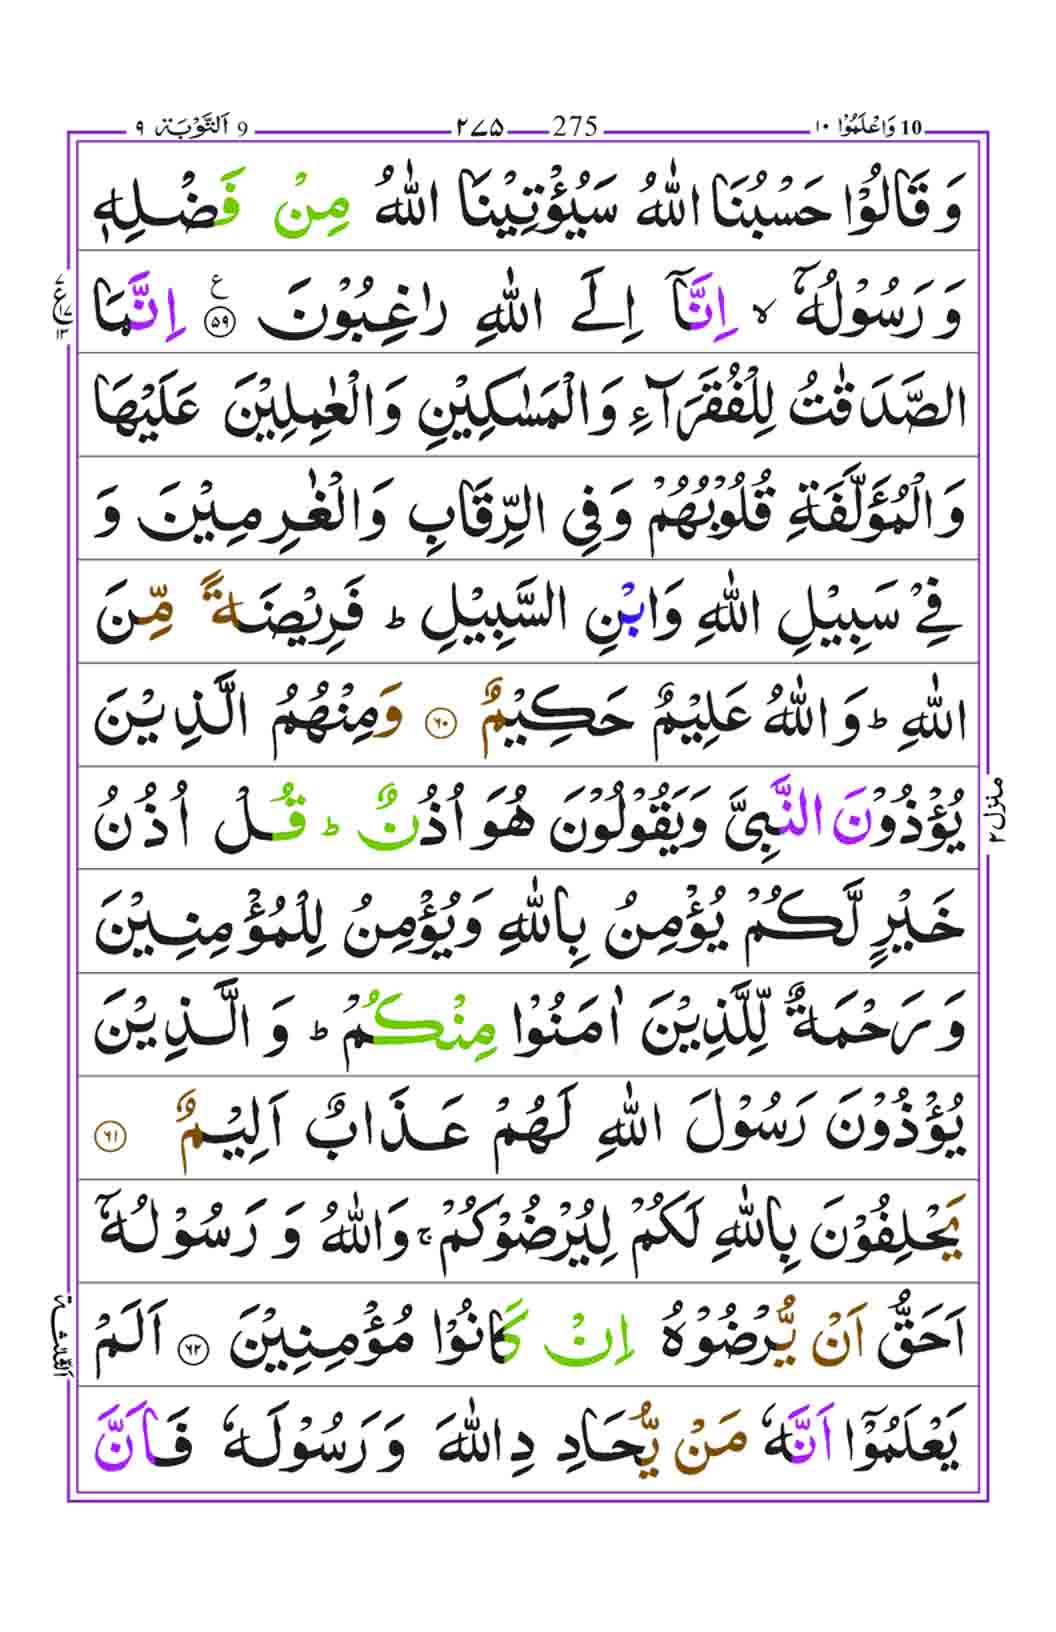 9 اَلتَّوۡبَة ٩ ٢٧٥ 275 10 وَاعۡلَمُوۡۤا ١٠
وَ قَالُوۡا حَسۡبُنَا اللّٰهُ سَيُؤۡتِيۡنَا اللّٰهُ مِنۡ فَضۡلِهٖ
وَ رَسُوۡلُهٗۤ ۙ اِنَّاۤ اِلَى اللّٰهِ رٰغِبُوۡنَ ﴿٥٩﴾ ع اِنَّمَا
ع ٧ ١٧ ١٣
الصَّدَقٰتُ لِلۡفُقَرَآءِ وَالۡمَسٰكِيۡنِ وَالۡعٰمِلِيۡنَ عَلَيۡهَا
وَالۡمُؤَلَّفَةِ قُلُوۡبُهُمۡ وَفِى الرِّقَابِ وَالۡغٰرِمِيۡنَ وَ
فِىۡ سَبِيۡلِ اللّٰهِ وَابۡنِ السَّبِيۡلِ ؕ فَرِيۡضَةً مِّنَ
اللّٰهِ ؕ وَاللّٰهُ عَلِيۡمٌ حَكِيۡمٌ ﴿٦٠﴾ وَمِنۡهُمُ الَّذِيۡنَ
يُؤۡذُوۡنَ النَّبِىَّ وَيَقُوۡلُوۡنَ هُوَ اُذُنٌ ؕ قُلۡ اُذُنُ
منزل ٢
خَيۡرٍ لَّـكُمۡ يُؤۡمِنُ بِاللّٰهِ وَيُؤۡمِنُ لِلۡمُؤۡمِنِيۡنَ
وَ رَحۡمَةٌ لِّلَّذِيۡنَ اٰمَنُوۡا مِنۡكُمۡ ؕ وَ الَّذِيۡنَ
يُؤۡذُوۡنَ رَسُوۡلَ اللّٰهِ لَهُمۡ عَذَابٌ اَلِيۡمٌ ﴿٦١﴾
يَحۡلِفُوۡنَ بِاللّٰهِ لَـكُمۡ لِيُرۡضُوۡكُمۡ ۚ وَاللّٰهُ وَ رَسُوۡلُهٗۤ
اَحَقُّ اَنۡ يُّرۡضُوۡهُ اِنۡ كَانُوۡا مُؤۡمِنِيۡنَ ﴿٦٢﴾ اَلَمۡ
الثلثة
يَعۡلَمُوۡۤا اَنَّهٗ مَنۡ يُّحَادِدِ اللّٰهَ وَ رَسُوۡلَهٗ فَاَنَّ